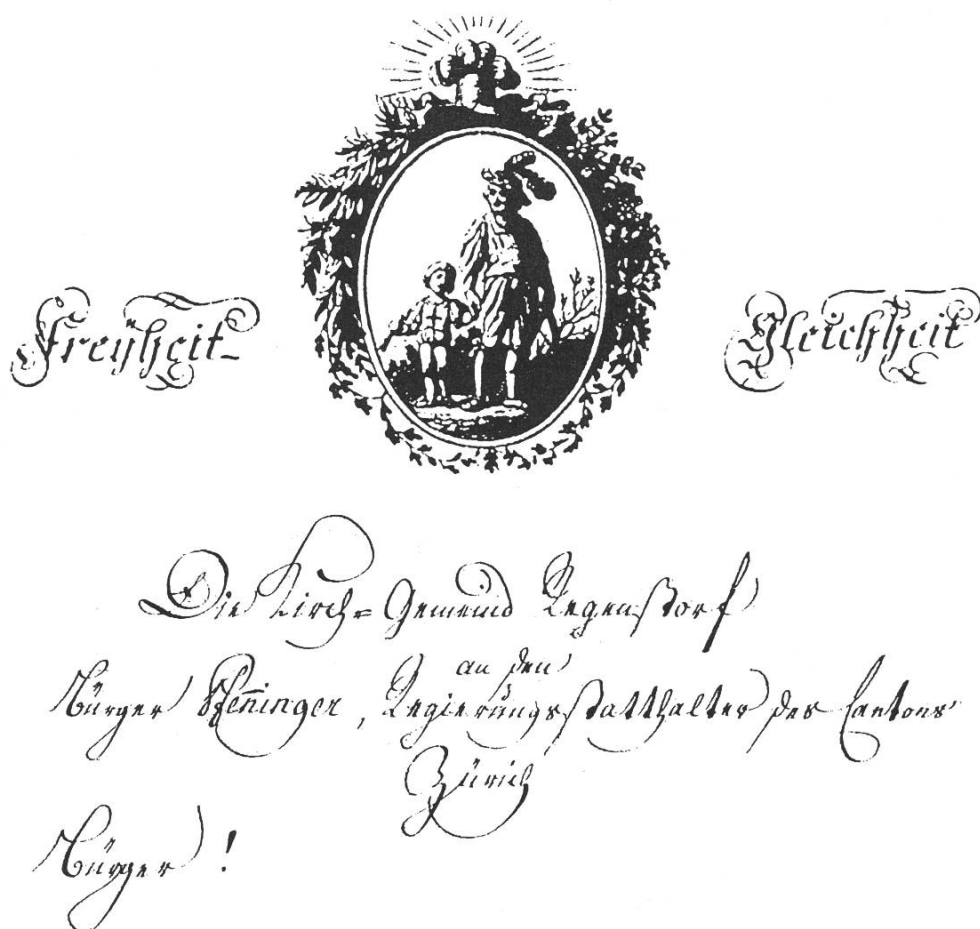 Freÿheit_
Gleichheit
Die Kirch=Gemeind Regenstorf
an den
Bürger Pfenninger, Regierungsstatthalter des Cantons
Zürich
Bürger !